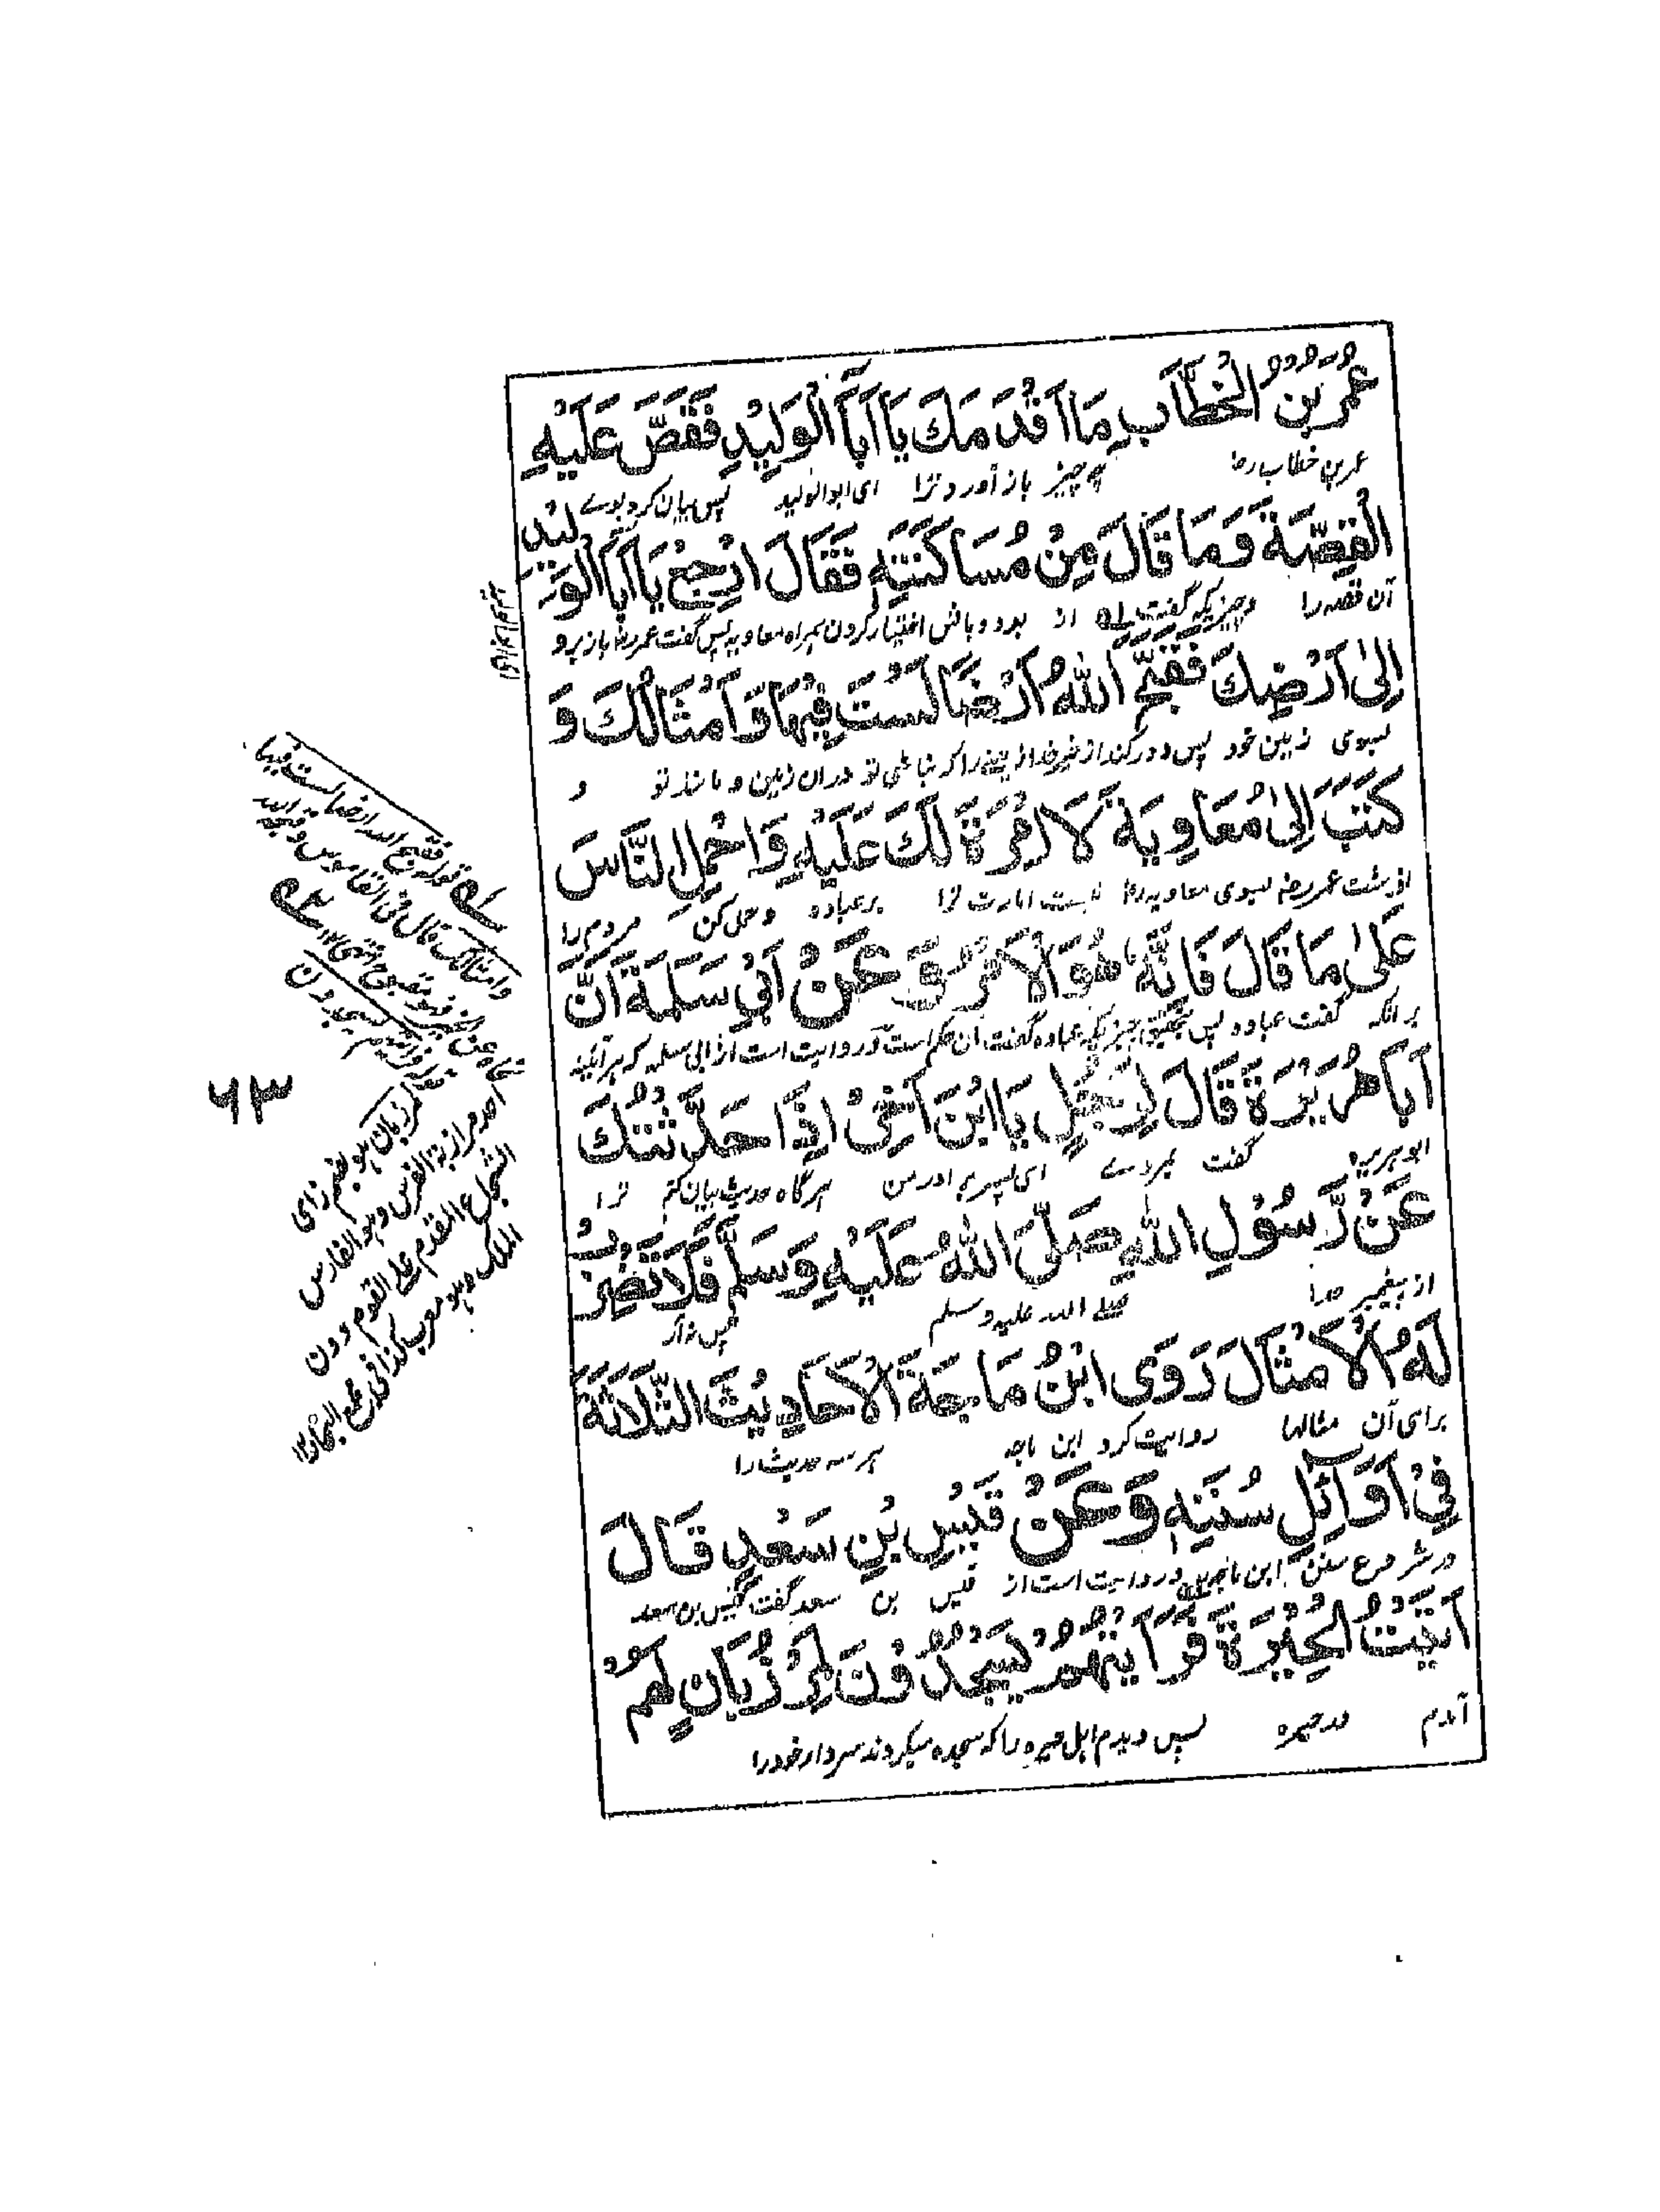 عُمَرُ بْنُ الْخَطَّابِ مَا اَقْدَمَكَ يَا اَبَا الْوَلِيْدِ فَقَصَّ عَلَيْهِ
عمر بن خطاب رضا چه چیز باز آورد ترا ای ابوالولید پس بیان کرد بوے
الْقِصَّةَ وَمَا قَالَ مِنْ مُسَاكَنَتِهٖ فَقَالَ ارْجِعْ يَا اَبَا الْوَلِيْدِ
آن قصه را و چیزیکه گفت از بود و باش اختیار کردن همراه معاویه پس گفت عمر رضا باز برو
اِلٰى اَرْضِكَ فَقَبَّحَ اللّٰهُ اَرْضًا لَسْتَ فِيْهَا وَاَمْثَالُكَ وَ
بسوی زمین خود پس دور کند از خیر خدا زمینے را که نباشی تو دران زمین و مانند تو و
كَتَبَ اِلٰى مُعَاوِيَةَ لَا اِمْرَةَ لَكَ عَلَيْهِ وَاحْمِلِ النَّاسَ
نوشت عمر رضا بسوی معاویه رضا نیست امارت ترا بر عباده و حمل کن مردم را
عَلٰى مَا قَالَ فَاِنَّهٗ هُوَ الْاَمْرُ وَ عَنْ اَبِيْ سَلَمَةَ اَنَّ
بر آنکه گفت عباده پس بتحقیق چیزیکه عباده گفت آن حکم است و روایت است از ابی سلمه که هر آئینه
اَبَا هُرَيْرَةَ قَالَ لِرَجُلٍ يَا ابْنَ اَخِيْ اِذَا حَدَّثْتُكَ
ابو هریره گفت بمردے ای پسر برادر من هرگاه حدیث بیان کنم ترا
عَنْ رَّسُوْلِ اللّٰهِ صَلَّى اللّٰهُ عَلَيْهِ وَسَلَّمَ فَلَا تَضْرِبْ
از پیغمبر خدا صلے الله علیه وسلم پس نه آر
لَهُ الْاَمْثَالَ رَوَى ابْنُ مَاجَةَ الْاَحَادِيْثَ الثَّلَاثَةَ
برای آن مثالها روایت کرد ابن ماجه هر سه حدیث را
فِيْ اَوَآئِلِ سُنَنِهٖ وَ عَنْ قَيْسِ بْنِ سَعْدٍ قَالَ
در شروع سنن ابن ماجه و روایت است از قیس بن سعد گفت قیس بن سعد
اَتَيْتُ الْحِيْرَةَ فَرَاَيْتُهُمْ يَسْجُدُوْنَ لِمَرْزُبَانٍ لَهُمْ
آمدم در حیره پس دیدم اهل حیره را که سجده میکردند سردار خود را
قوله فقبح الله ارضا لست فیها
وامثالک قال فی القاموس وقبحه الله
یسجدون
لمرزبان هو بضم زای
احد مرازبة الفرس وهو الفارس
الشجاع المقدم علی القوم دون
الملک وهو معرب کذا فی مجمع البحار ۱۲
۶۳